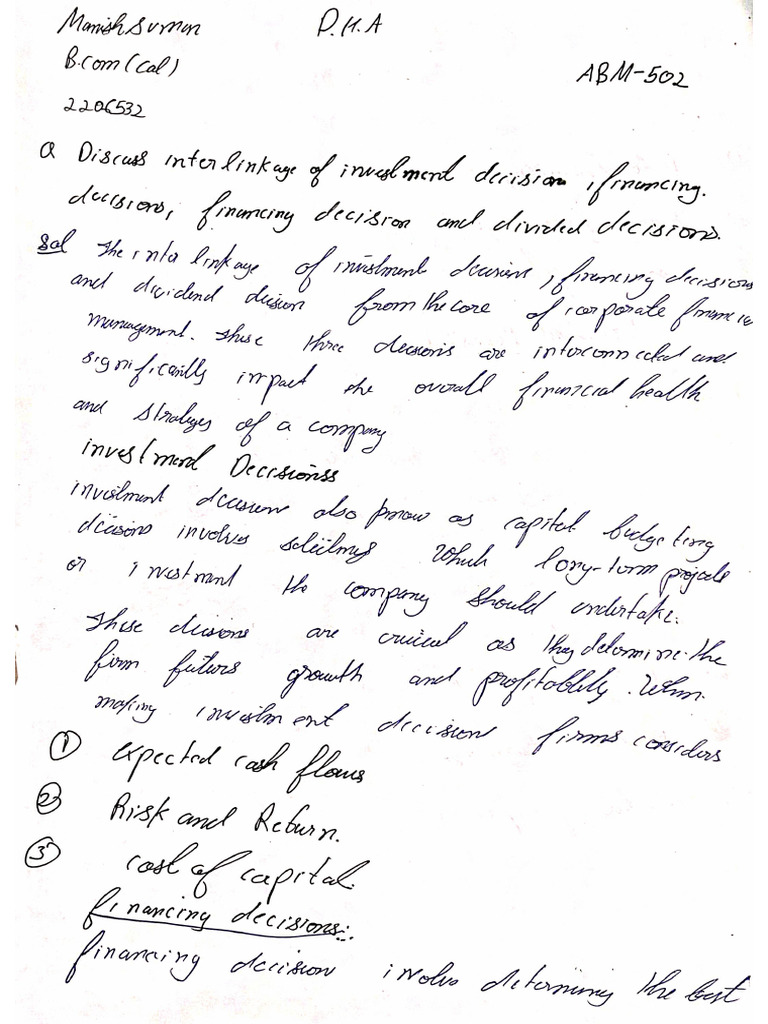 Manish Suman P.H.A
B.com (Cal)
ABM-502
2206532
Q Discuss interlinkage of investment decision, financing.
decisions, financing decision and divided decisions.
Sol The inter linkage of investment decisions, financing decisions
and dividend decision from the core of corporate financial
management. These three decisions are interconnected and
significantly impact the overall financial health
and strategies of a company
investment Decisionss
investment decisions also know as capital budgeting
decisions involves selecting which long-term projects
or investment the company should undertake.
These decisions are crucial as they determine the
firm future growth and profitability. When
making investment decision firms considers
① Expected cash flows
② Risk and Return.
③ cost of capital.
financing decisions:
financing decision involve determining the best